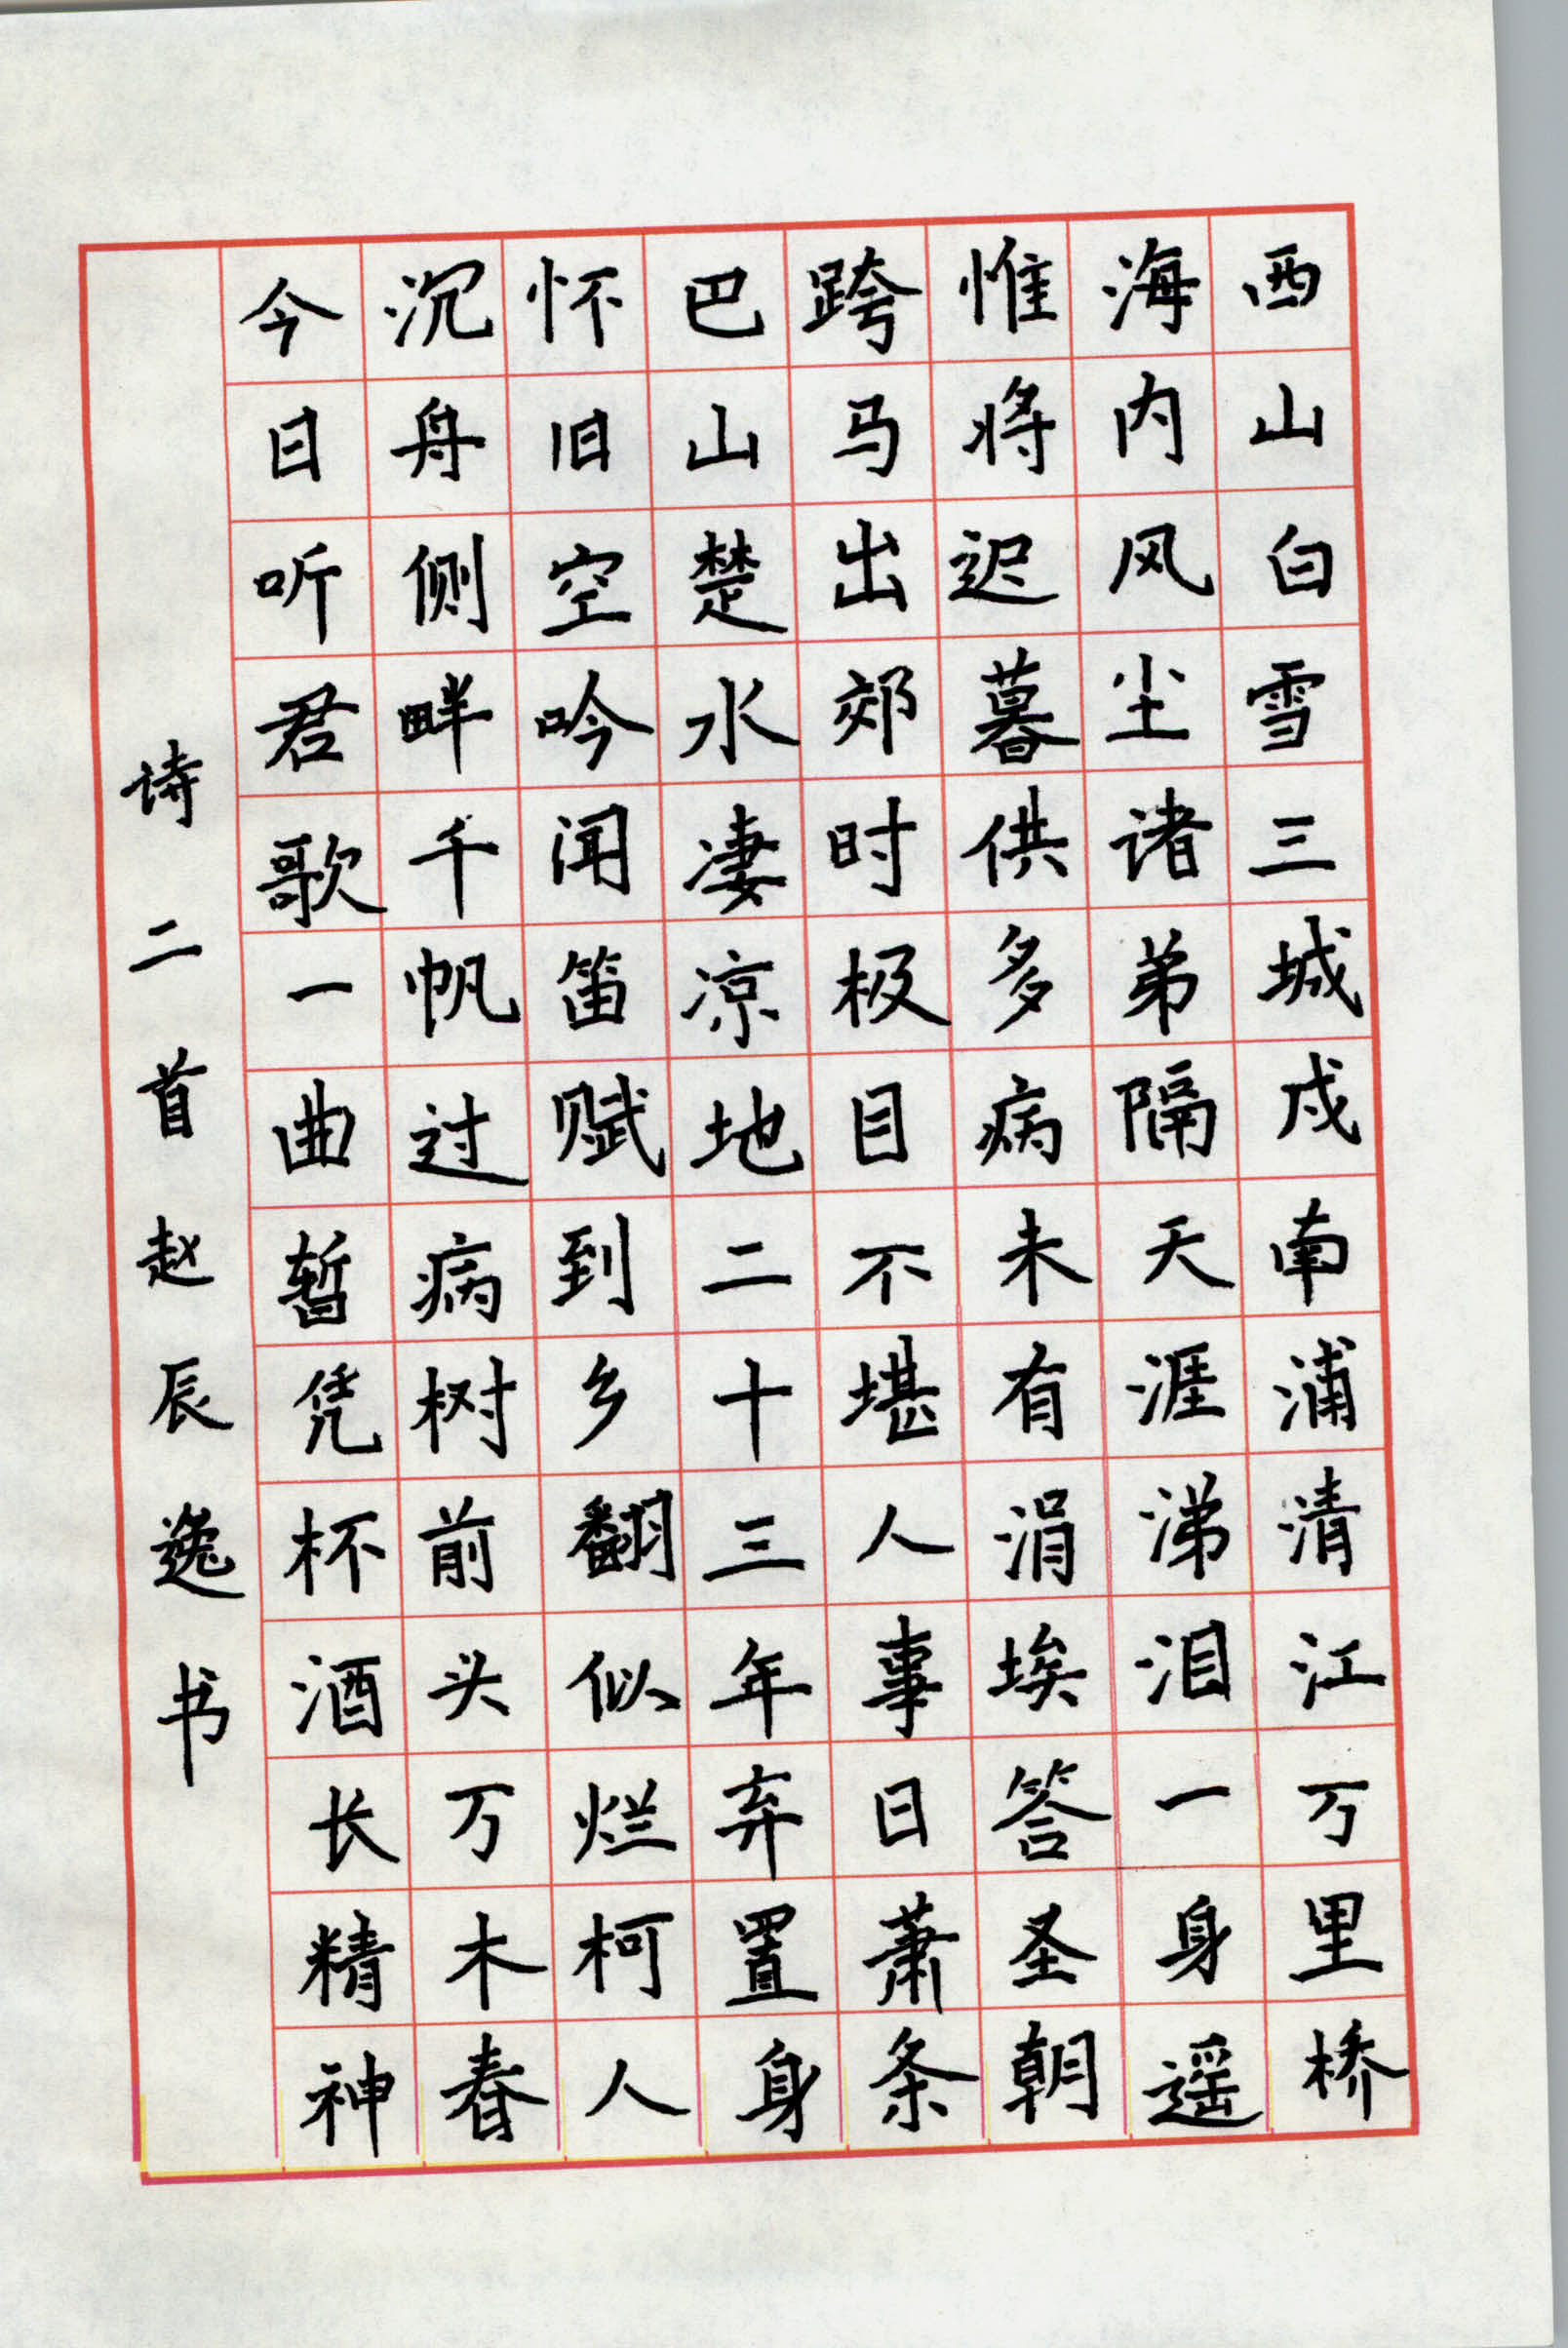 西山白雪三城戍南浦清江万里桥
海内风尘诸弟隔天涯涕泪一身遥
惟将迟暮供多病未有涓埃答圣朝
跨马出郊时极目不堪人事日萧条
巴山楚水凄凉地二十三年弃置身
怀旧空吟闻笛赋到乡翻似烂柯人
沉舟侧畔千帆过病树前头万木春
今日听君歌一曲暂凭杯酒长精神
诗二首赵辰逸书